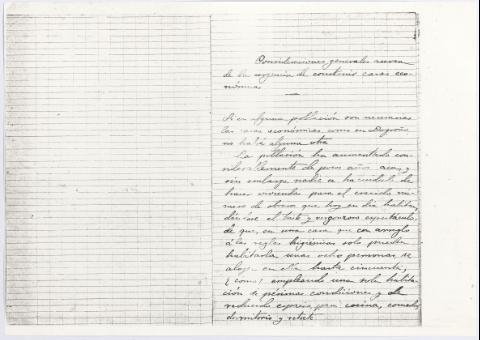 Consideraciones generales acerca
de la urgencia de construir casas eco-
nómicas

Si en alguna población son necesarias
las casas económicas como en Logroño
no habrá alguna otra
La población ha aumentado con-
siderablemente de pocos años acá, y
sin embargo nadie se ha cuidado de
hacer viviendas para el crecido nú-
mero de obreros que hoy en día habitan,
dándose el triste y vergonzoso espectáculo,
de que, en una casa que con arreglo
á las reglas higiénicas solo pueden
habitarla unas ocho personas, se
alojen en ella hasta cincuenta,
y como? empleando una sola habita-
ción de pésimas condiciones y de
reducido espacio para cocina, comedor,
dormitorio y retrete